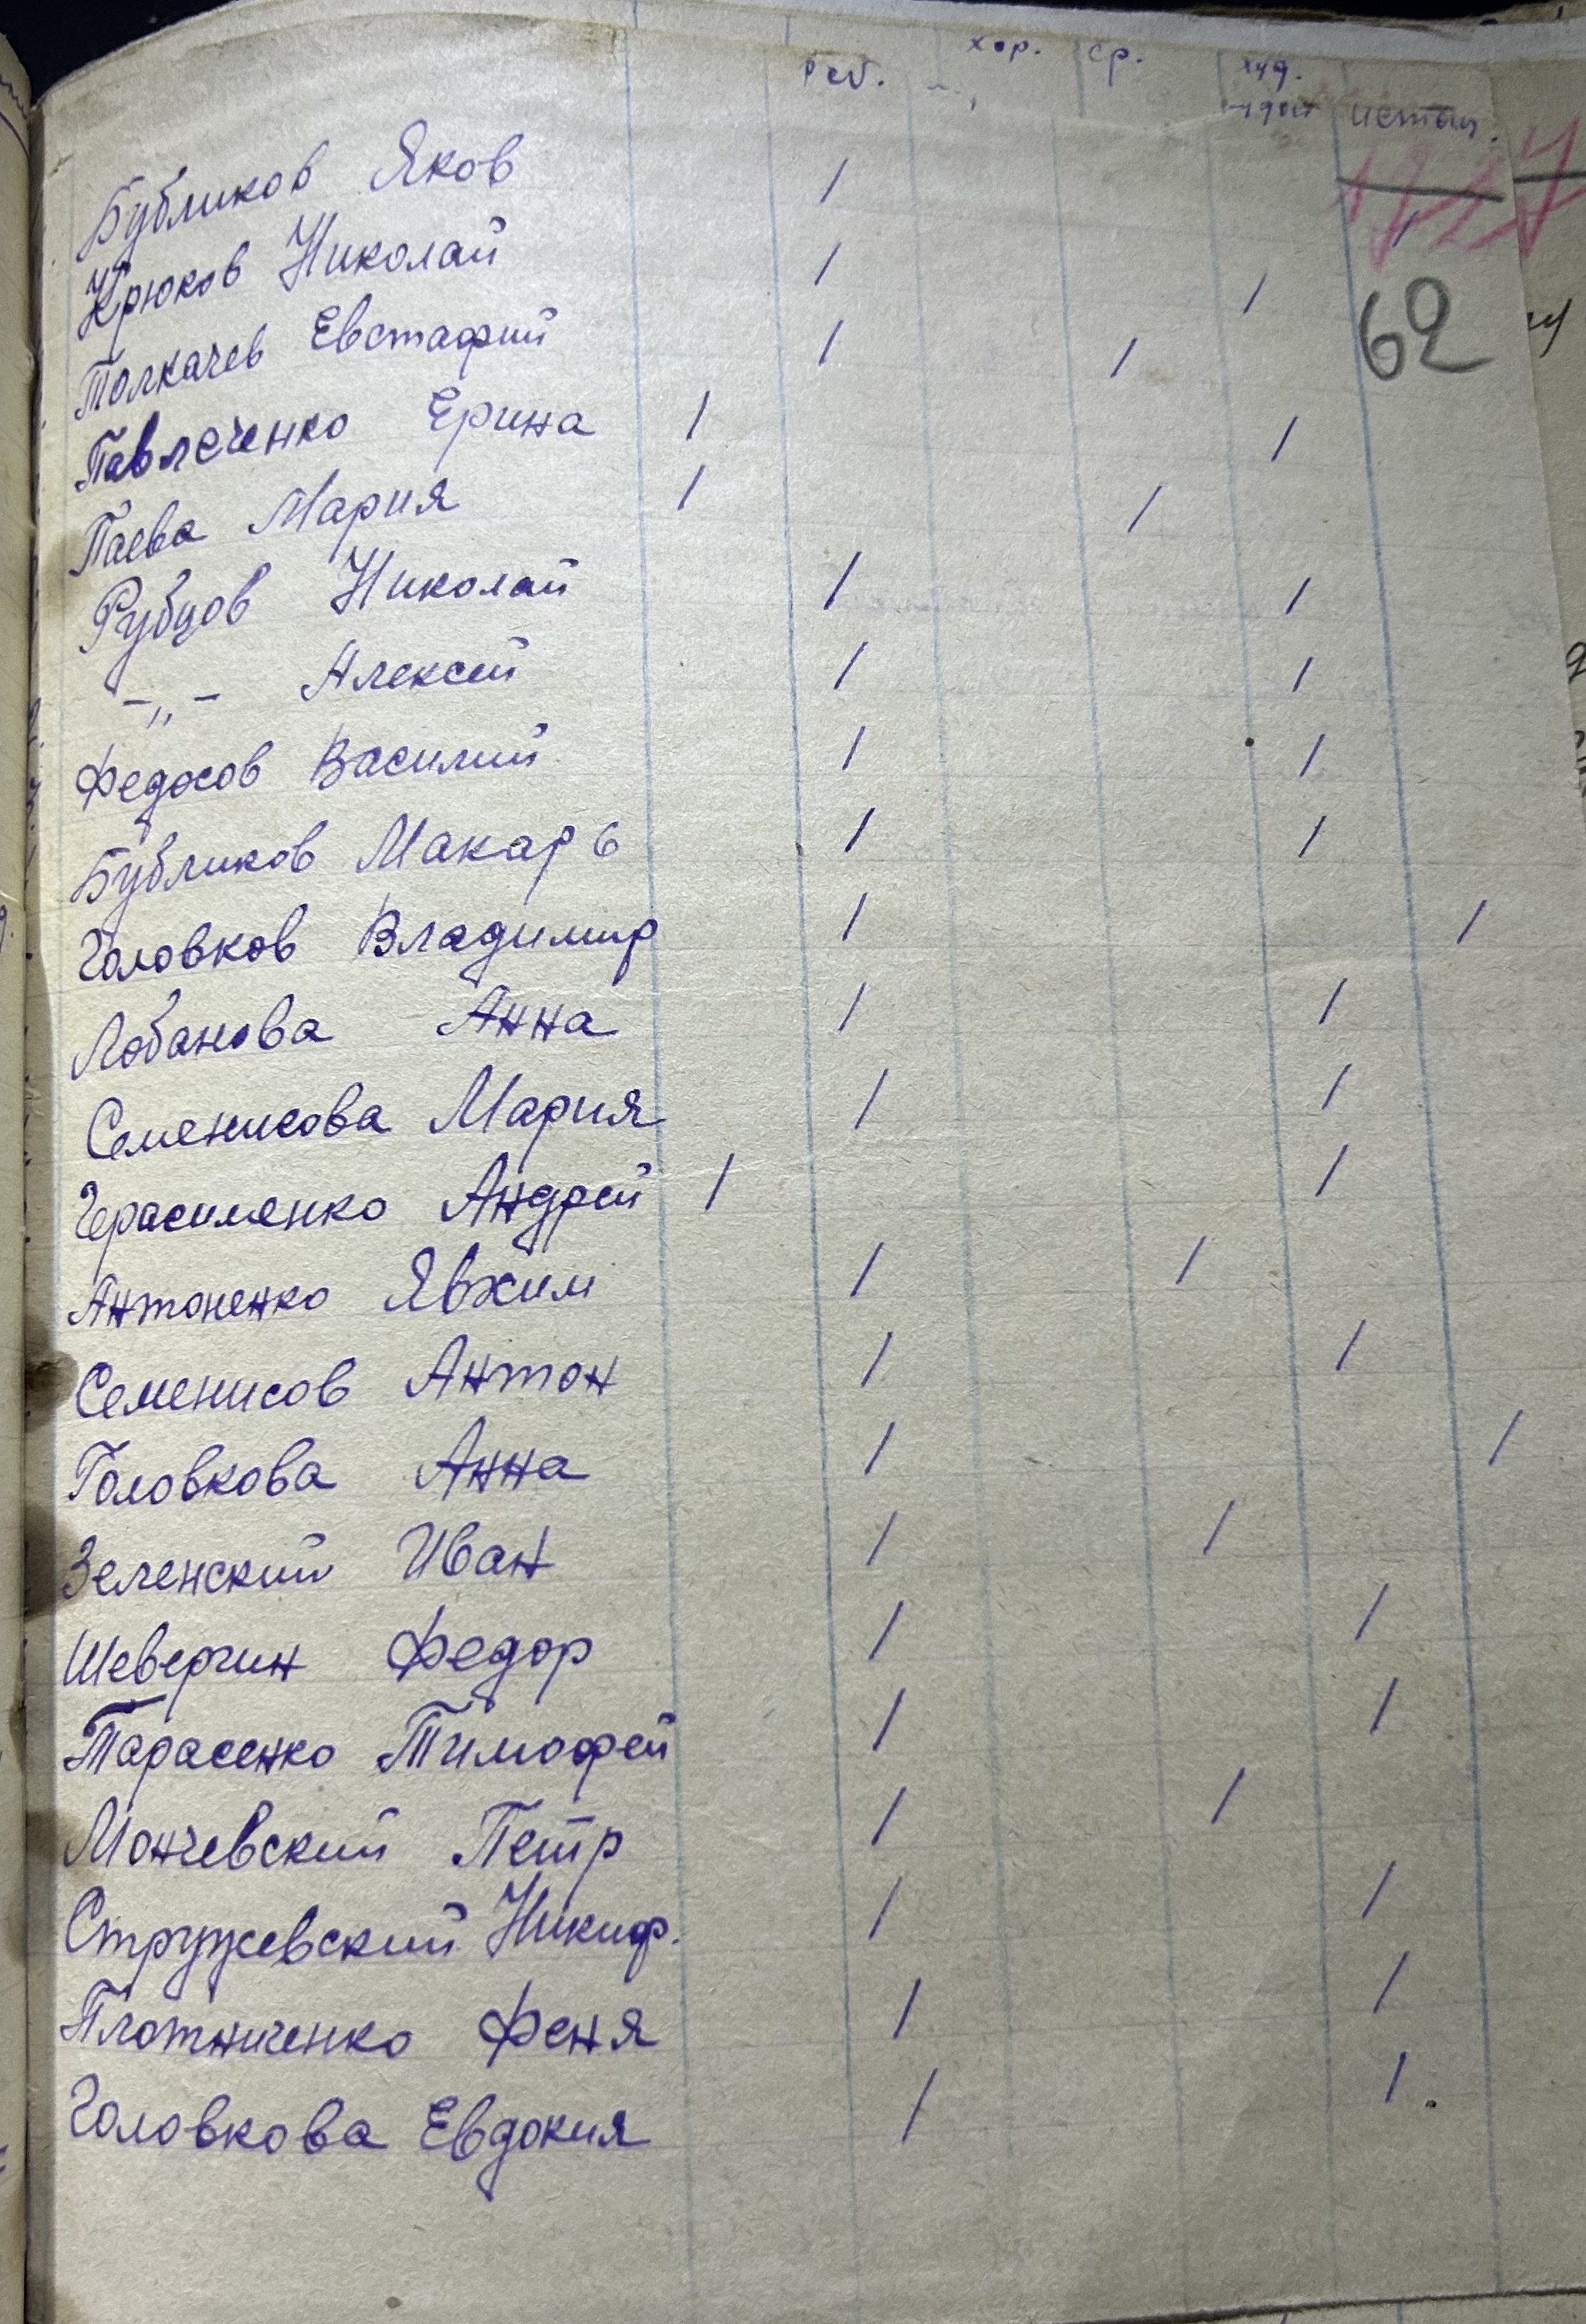 хор. ср. худ.
истощ.
62
Бубликов Яков /
Крюков Николай / /
Толкачев Евстафий / /
Павлеченко Ерина / /
Паева Мария / /
Рубцов Николай / /
-„- Алексей / /
Федосов Василий / /
Бубликов Макарь / /
Головков Владимир / /
Лобанова Анна / /
Семенисова Мария / /
Герасименко Андрей / /
Антоненко Явхим / /
Семенисов Антон / /
Головкова Анна / /
Зеленский Иван / /
Шевергин Федор / /
Тарасенко Тимофей / /
Мончевский Петр / /
Стружевский Никиф. / /
Плотниченко Феня / /
Головкова Евдокия / /